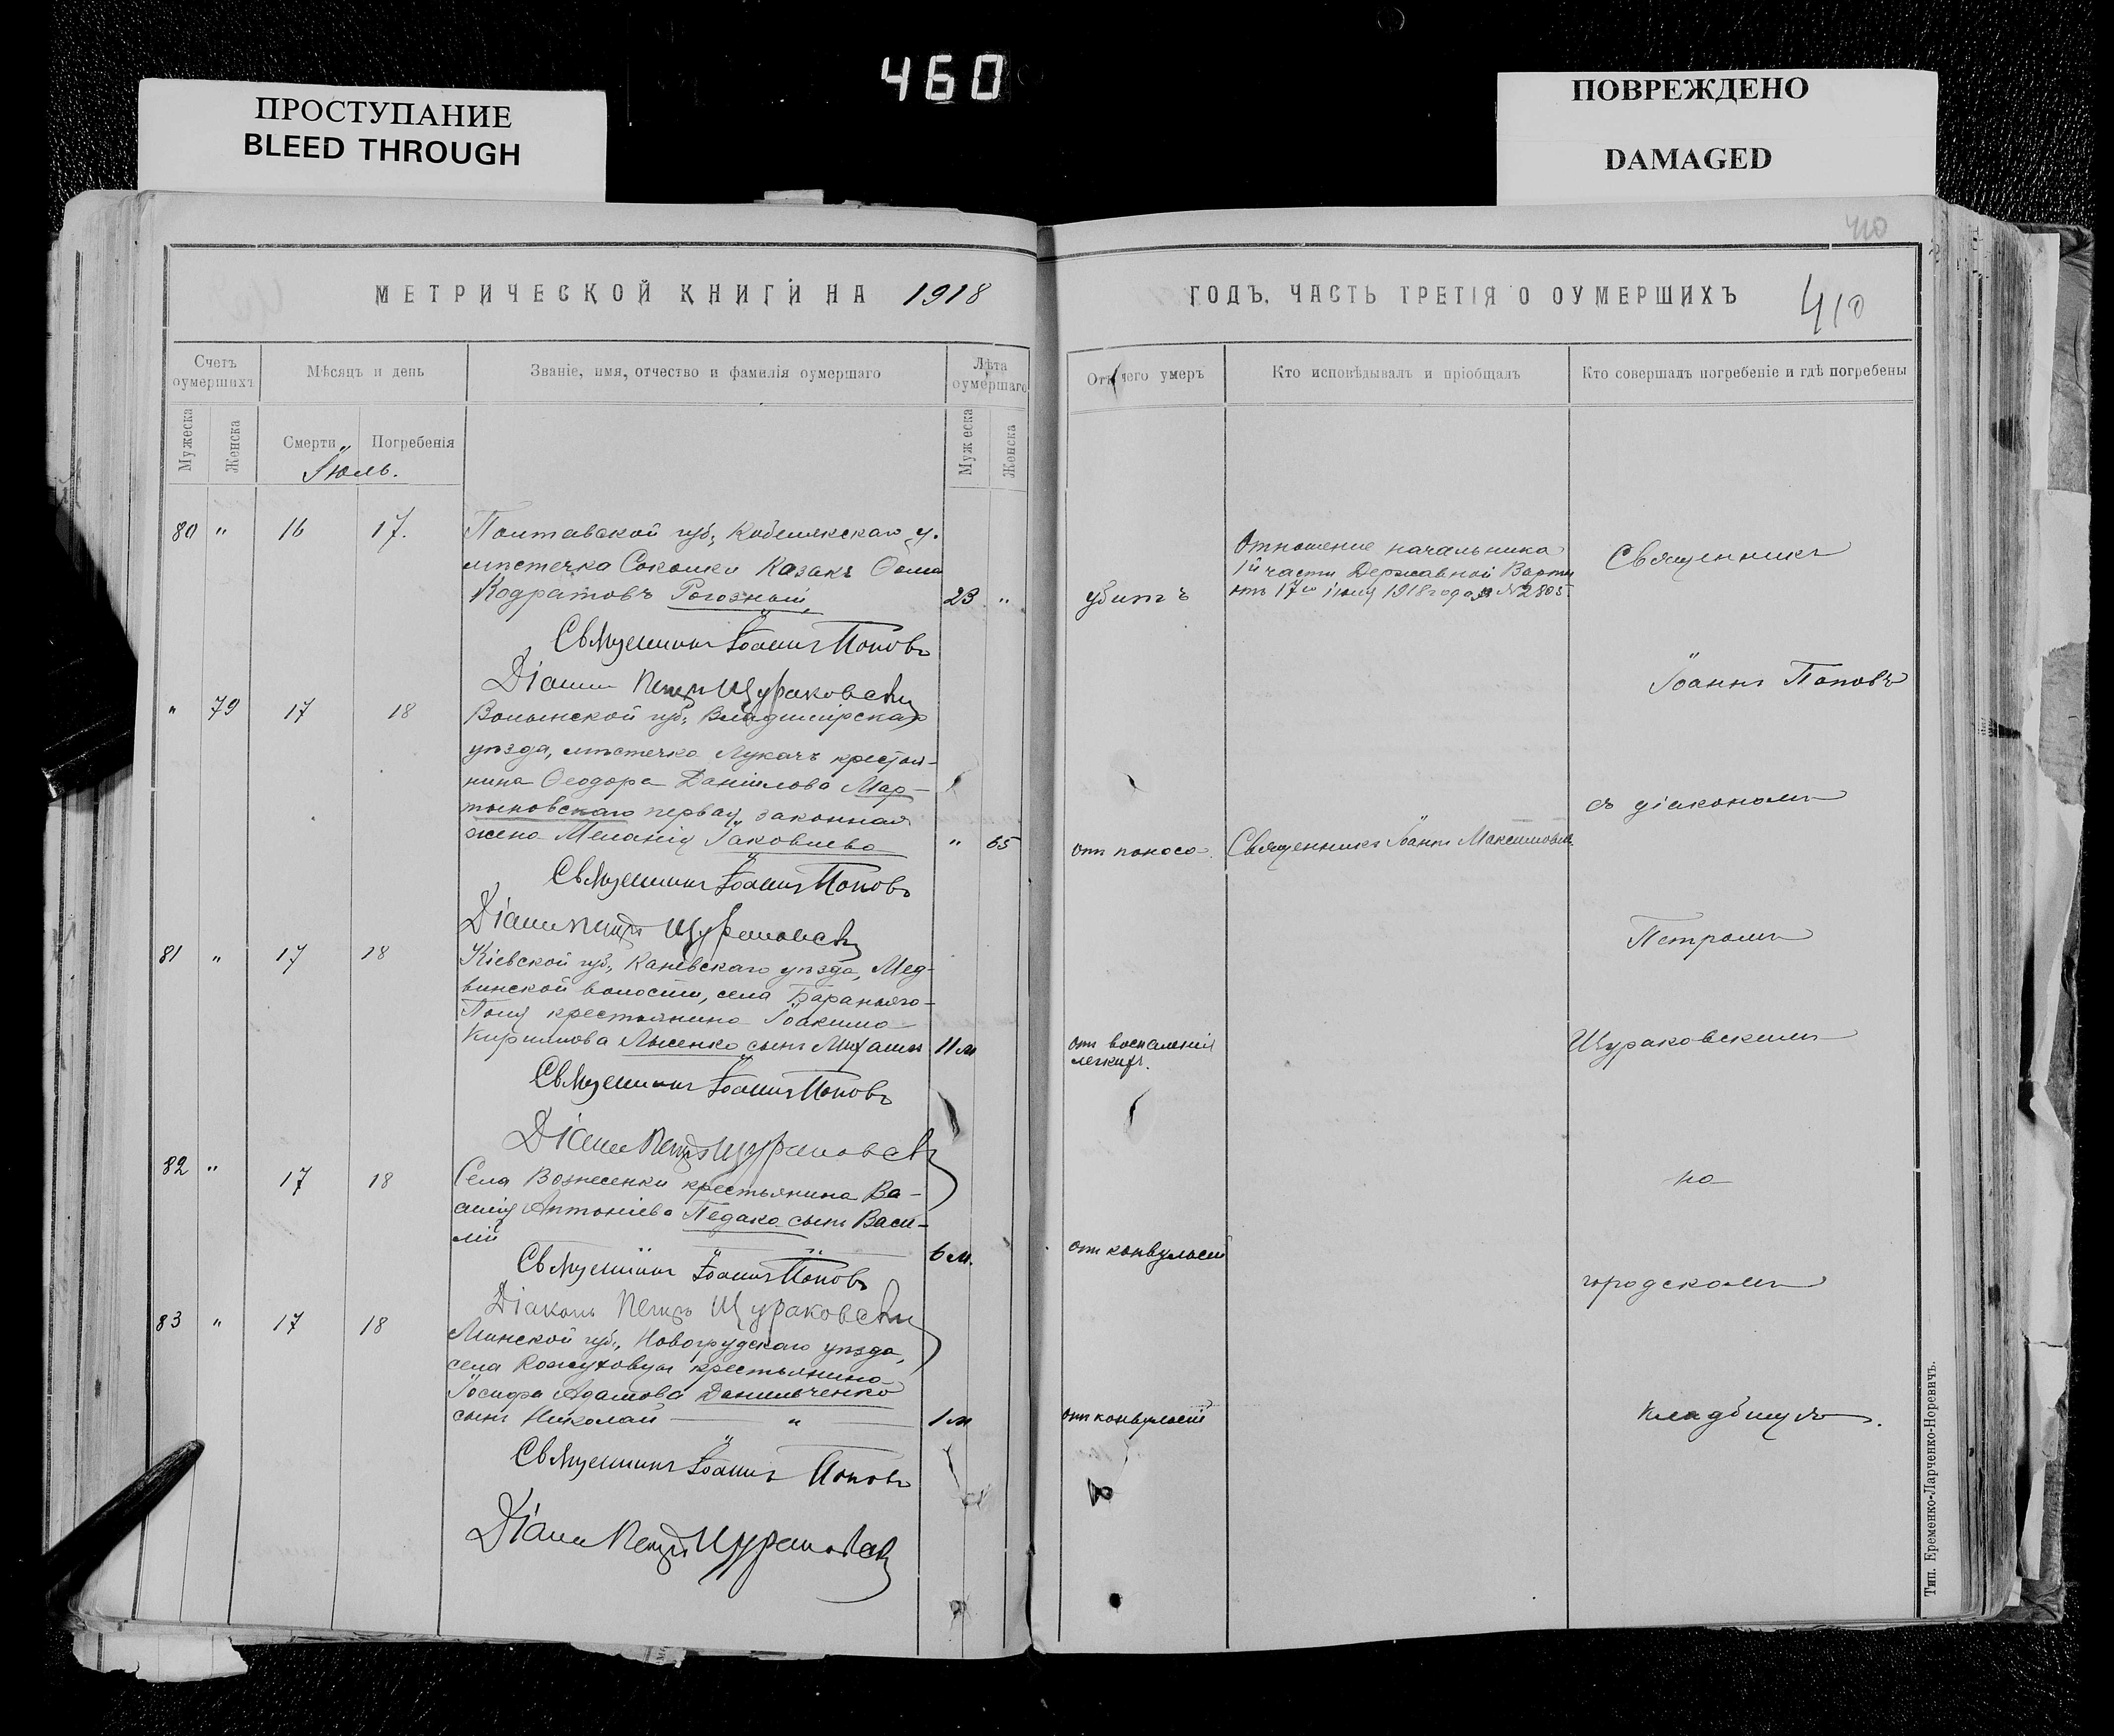 460
ПРОСТУПАНИЕ
BLEED THROUGH
ПОВРЕЖДЕНО
DAMAGED
410
МЕТРИЧЕСКОЙ КНИГИ НА 1918
ГОДЪ, ЧАСТЬ ТРЕТІЯ О ОУМЕРШИХЪ
410
Счетъ оумершихъ
Мѣсяцъ и день
Званіе, имя, отчество и фамилія оумершаго
Лѣта оумершаго
Отъ чего умеръ
Кто исповѣдывалъ и пріобщалъ
Кто совершалъ погребеніе и гдѣ погребены
Мужеска
Женска
Смерти
Погребенія
Мужеска
Женска
Іюль.
80 " 16 17.
Полтавской губ., Кобелякскаго у.
мѣстечка Соколки Казакъ Ѳома
Кодратовъ Рогозный 23 "
убитъ
Отношеніе начальника
1й части Державной Варты
отъ 17го іюля 1918 года за №2805.
Священникъ
Священникъ Іоаннъ Поповъ
Діаконъ Петръ Щураковскій
Іоаннъ Поповъ
" 79 17 18
Волынской губ., Владимірскаго
уѣзда, мѣстечка Лукачъ крестья-
нина Ѳеодора Даніилова Мар-
тыновскаго первая законная
жена Меланія Іаковлева " 65
отъ поноса.
Священникъ Іоаннъ Максимовъ
съ діакономъ
Священникъ Іоаннъ Поповъ
Діаконъ Петръ Щураковскій
Петромъ
81 " 17 18
Кіевской губ., Каневскаго уѣзда, Мед-
винской волости, села Бараньяго-
Поля крестьянина Іоакима
Кириллова Лысенко сынъ Михаилъ 11 м
отъ воспаленія
легкихъ.
Щураковскимъ
Священникъ Іоаннъ Поповъ
Діаконъ Петръ Щураковскій
82 " 17 18
Села Вознесенки крестьянина Ва-
силія Антоніева Педако сынъ Васи-
лій 6 м.
отъ конвульсій
на
Священникъ Іоаннъ Поповъ
Діаконъ Петръ Щураковскій
городскомъ
83 " 17 18
Минской губ., Новогрудскаго уѣзда,
села Кожуховцы крестьянина
Іосифа Адамова Данильченко
сынъ Николай " 1 м
отъ конвульсій
кладбищѣ.
Священникъ Іоаннъ Поповъ
Діаконъ Петръ Щураковскій
Тип. Еременко-Ларченко-Норевичъ.